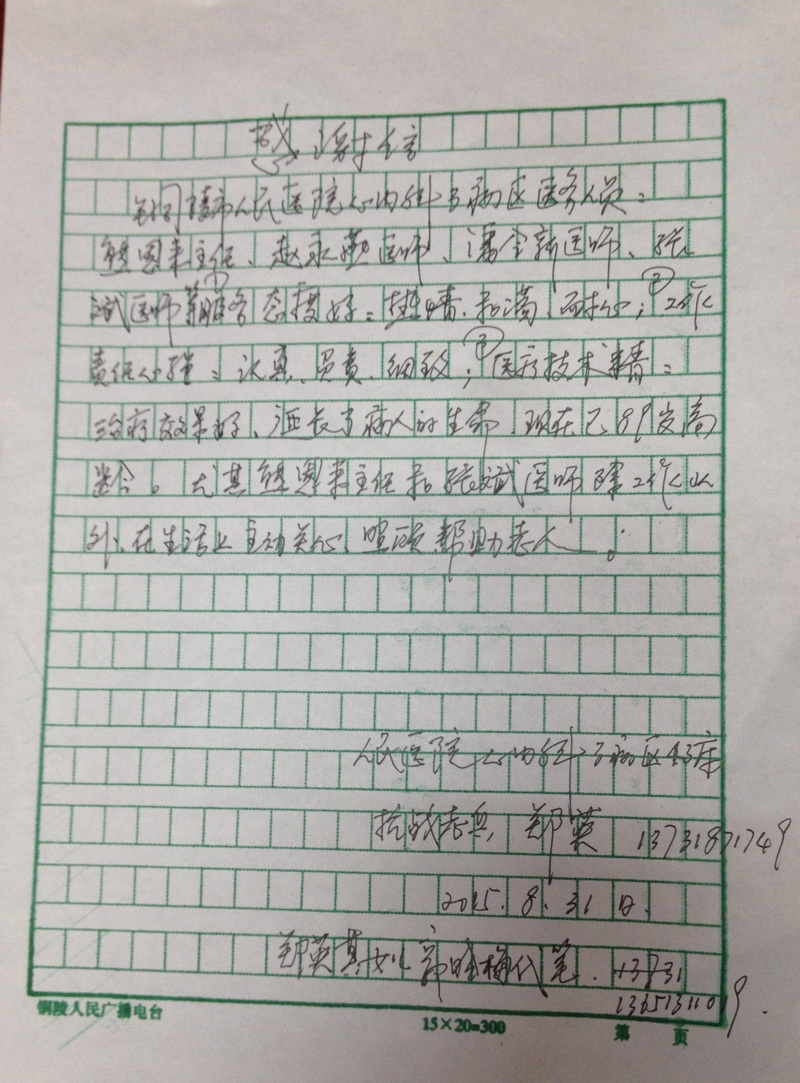 感谢信
铜陵市人民医院心内科子病区医务人员：
熊国来主任、赵永勤医师、潘全新医师、张
斌医师①服务态度好：热情、和满、耐心；②工作
责任心强：认真、负责、细致；③医疗技术精：
治疗效果好、延长了病人的生命，现在已89岁高
龄。尤其熊国来主任和张斌医师除工作以
外，在生活上主动关心、照顾、帮助老人。
人民医院心内科子病区43床
抗战老兵 郑英 13731871749
2015.8.31日.
郑英其女儿 梅代笔.
铜陵人民广播电台 15×20=300 第 页